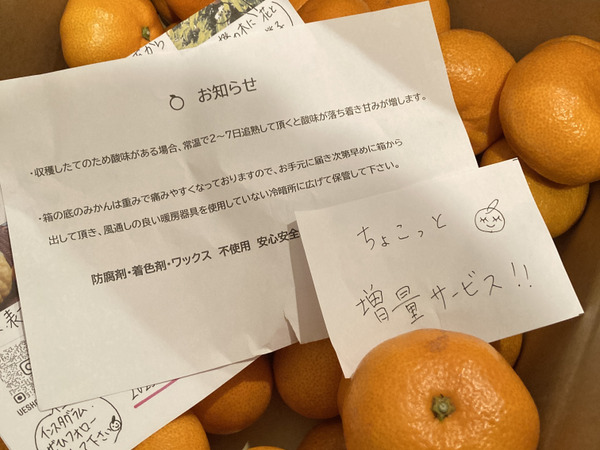 お知らせ
・収穫したてのため酸味がある場合、常温で2〜7日追熟して頂くと酸味が落ち着き甘みが増します。
・箱の底のみかんは重みで痛みやすくなっておりますので、お手元に届き次第早めに箱から
出して頂き、風通しの良い暖房器具を使用していない冷暗所に広げて保管して下さい。
防腐剤・着色剤・ワックス 不使用 安心安全
ちょこっと
増量サービス!!
インスタグラム
ぜひフォロー
して下さい